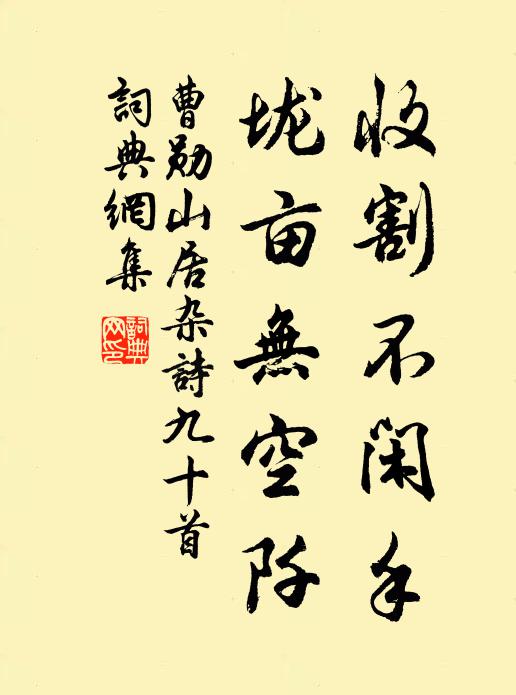 收割不闲手
垅亩無空阡
曹勋山居杂詩九十首
詞典網集
詞典网印